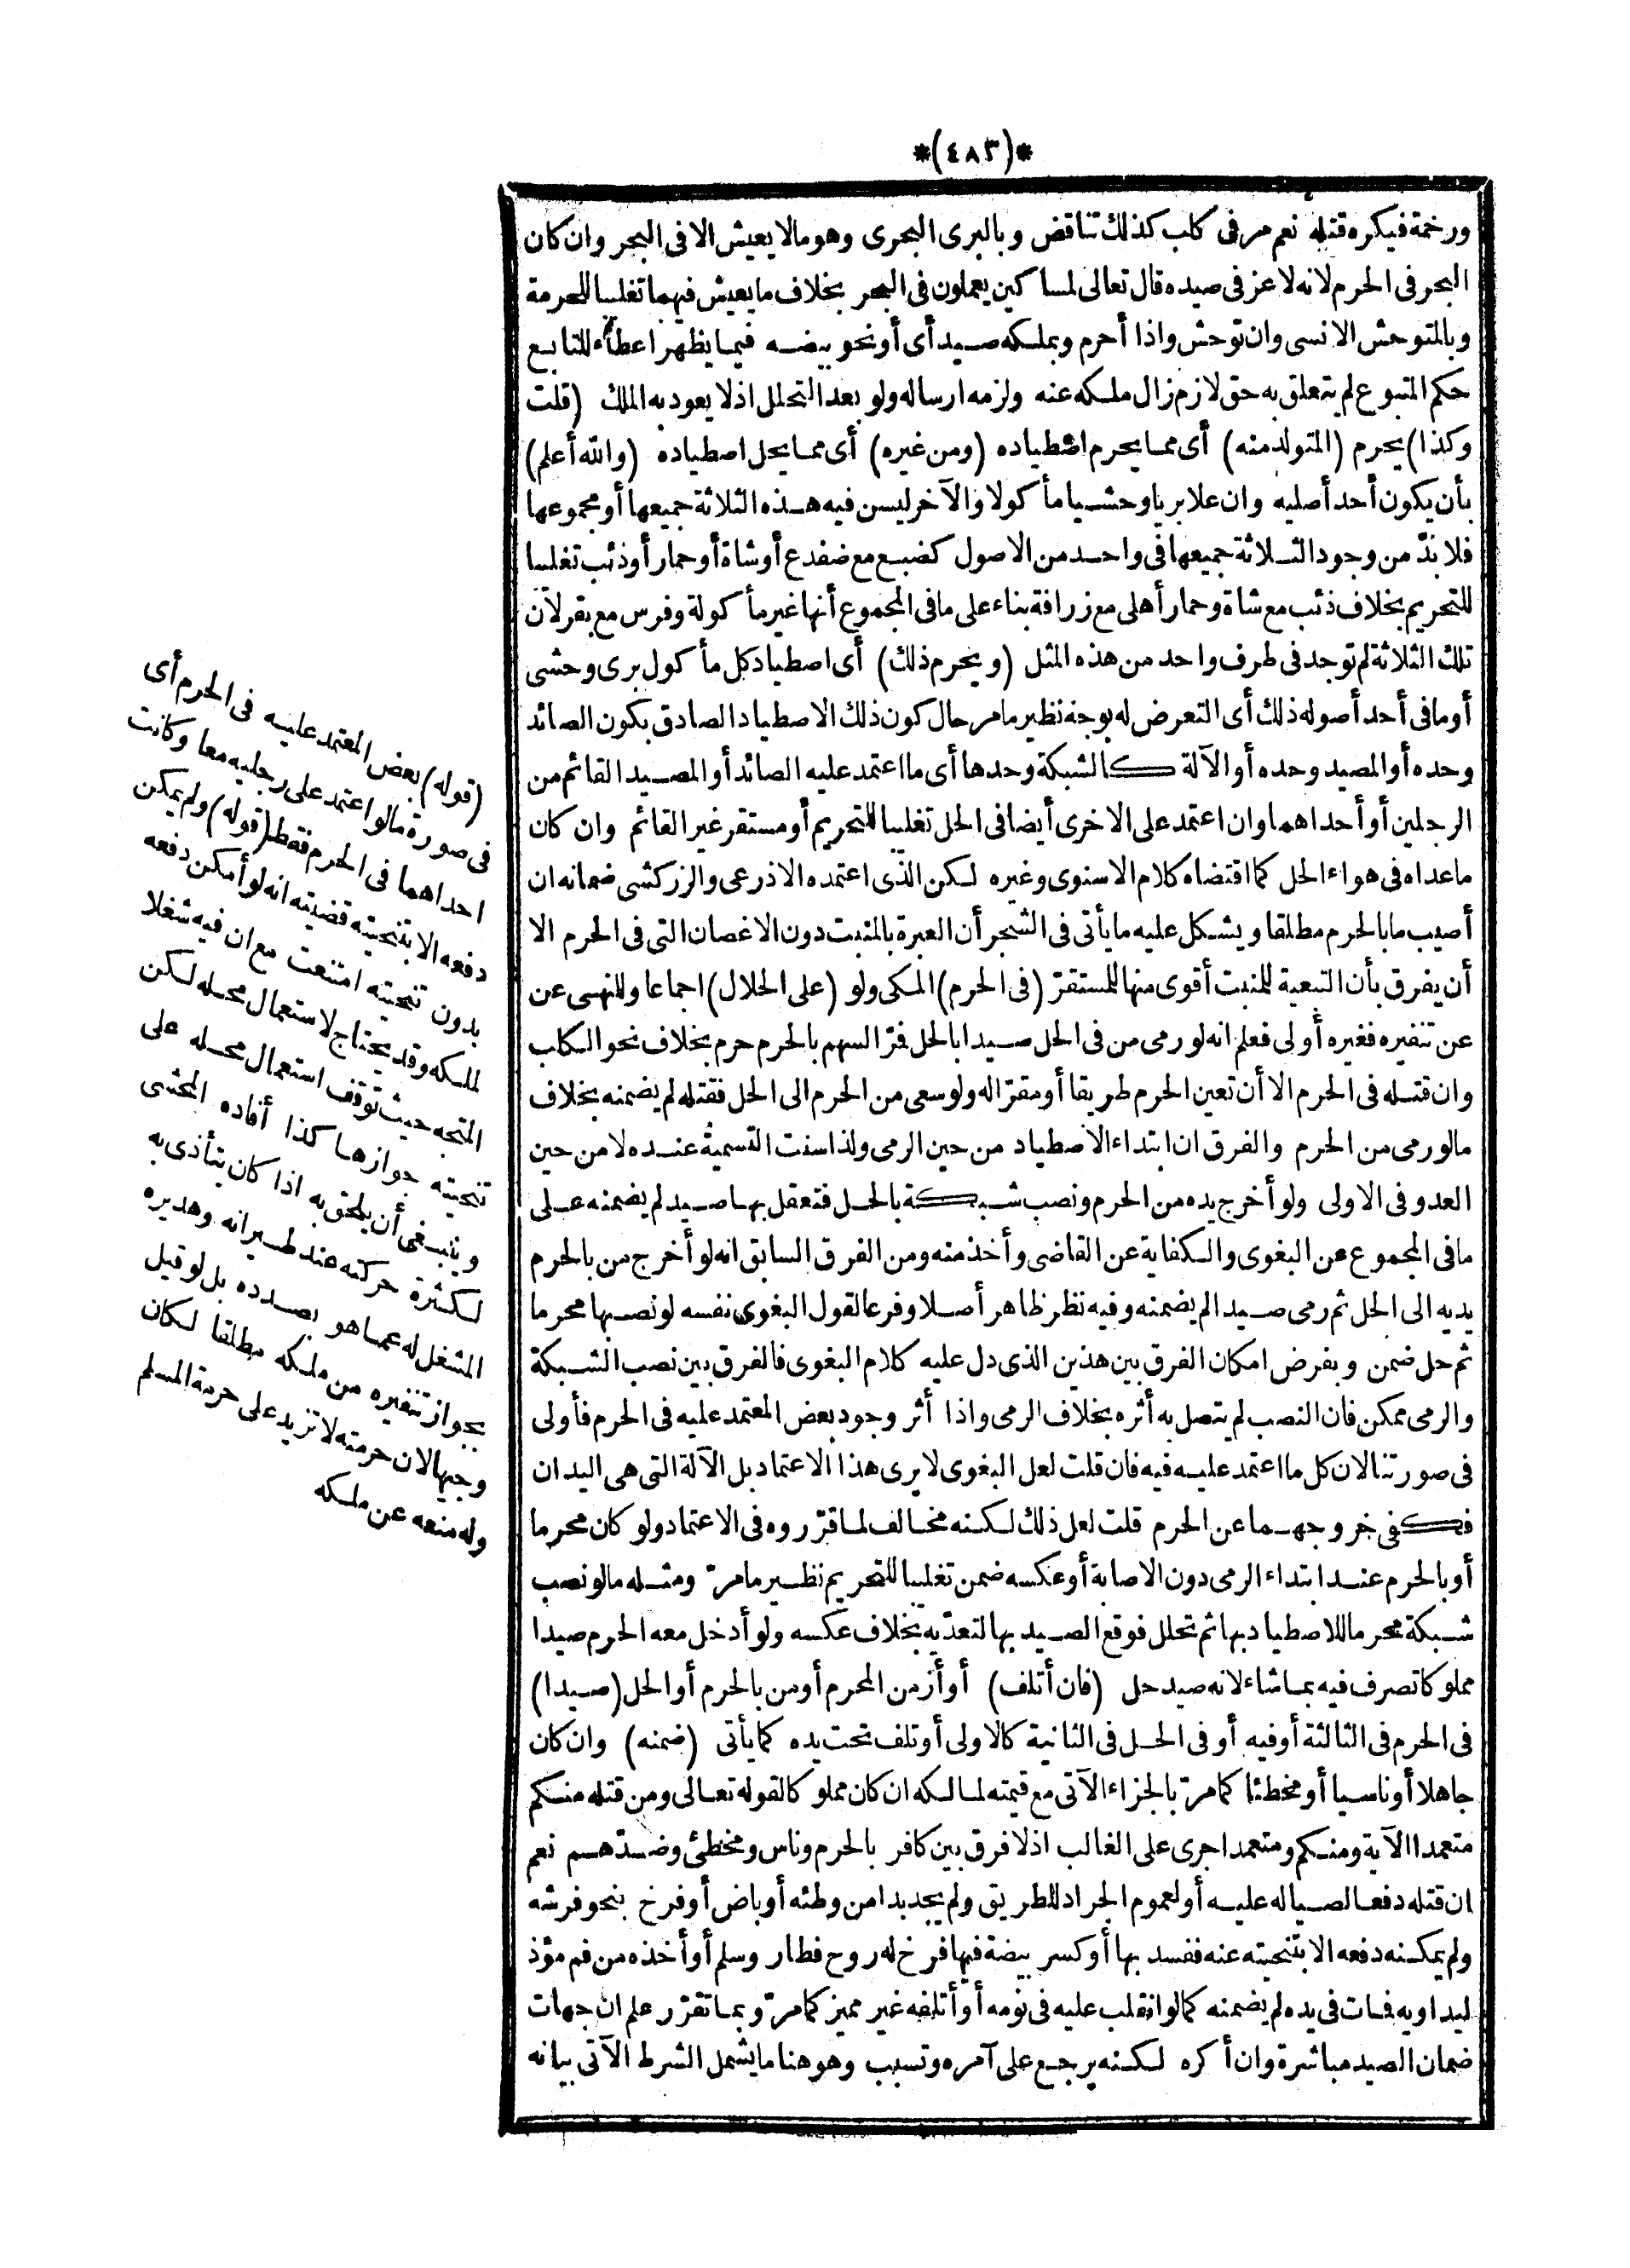 *(٤٨٣)*
ورخمة فيكره قتله نعم مر فى كلب كذلك تناقض وبالبرى البحرى وهو مالا يعيش الا فى البحر وان كان
البحر فى الحرم لانه لا عز فى صيده قال تعالى لمساكين يعملون فى البحر بخلاف ما يعيش فيهما تغليبا للحرمة
وبالمتوحش الانسى وان توحش واذا أحرم وبملكه صيد أى أو نحو بيضه فيما يظهر اعطاء للتابع
حكم المتبوع لم يتعلق به حق لازم زال ملكه عنه ولزمه ارساله ولو بعد التحلل اذ لا يعود به الملك (قلت
وكذا) يحرم (المتولد منه) أى مما يحرم اصطياده (ومن غيره) أى مما يحل اصطياده (والله أعلم)
بأن يكون أحد أصليه وان علا بريا وحشيا مأكولا والآخر ليس فيه هذه الثلاثة جميعها أو مجموعها
فلا بدّ من وجود الثلاثة جميعها فى واحد من الاصول كضبع مع ضفدع أو شاة أو حمار أو ذئب تغليبا
للتحريم بخلاف ذئب مع شاة وحمار أهلى مع زرافة بناء على ما فى المجموع أنها غير مأكولة وفرس مع بقر لان
تلك الثلاثة لم توجد فى طرف واحد من هذه المثل (ويحرم ذلك) أى اصطياد كل مأكول برى وحشى
أو ما فى أحد أصوله ذلك أى التعرض له بوجه نظير ما مر حال كون ذلك الاصطياد الصادق بكون الصائد
وحده أو المصيد وحده أو الآلة كالشبكة وحدها أى ما اعتمد عليه الصائد أو المصيد القائم من
الرجلين أو أحداهما وان اعتمد على الاخرى أيضا فى الحل تغليبا للتحريم أو مستقر غير القائم وان كان
ما عداه فى هواء الحل كما اقتضاه كلام الاسنوى وغيره لكن الذى اعتمده الاذرعى والزركشى ضمانه ان
أصيب ما بالحرم مطلقا ويشكل عليه ما يأتى فى الشجر أن العبرة بالمنبت دون الاغصان التى فى الحرم الا
أن يفرق بأن التبعية للمنبت أقوى منها للمستقرّ (فى الحرم) المكى ولو (على الحلال) اجماعا وللنهى عن
عن تنفيره فغيره أولى فعلم انه لو رمى من فى الحل صيدا بالحل فمرّ السهم بالحرم حرم بخلاف نحو الكلب
وان قتله فى الحرم الا أن تعين الحرم طريقا أو مقرّا له ولو سعى من الحرم الى الحل فقتله لم يضمنه بخلاف
ما لو رمى من الحرم والفرق ان ابتداء الاصطياد من حين الرمى ولذا سنت التسمية عنده لا من حين
العدو فى الاولى ولو أخرج يده من الحرم ونصب شبكة بالحل فتعقل بها صيد لم يضمنه على
ما فى المجموع عن البغوى والكفاية عن القاضى وأخذ منه ومن الفرق السابق انه لو أخرج من بالحرم
يديه الى الحل ثم رمى صيدا لم يضمنه وفيه نظر ظاهر أصلا وفرعا لقول البغوى نفسه لو نصبها محرما
ثم حل ضمن وبفرض امكان الفرق بين هذين الذى دل عليه كلام البغوى فالفرق بين نصب الشبكة
والرمى ممكن فان النصب لم يتصل به أثره بخلاف الرمى واذا أثر وجود بعض المعتمد عليه فى الحرم فأولى
فى صورتنا لان كل ما اعتمد عليه فيه فان قلت لعل البغوى لا يرى هذا الاعتماد بل الآلة التى هى اليدان
فكفى خروجهما عن الحرم قلت لعل ذلك لكنه مخالف لما قرّروه فى الاعتماد ولو كان محرما
أو بالحرم عند ابتداء الرمى دون الاصابة أو عكسه ضمن تغليبا للتحريم نظير ما مرّ ومثله ما لو نصب
شبكة محرما للاصطياد بها ثم تحلل فوقع الصيد بها لتعدّيه بخلاف عكسه ولو أدخل معه الحرم صيدا
مملوكا تصرف فيه بما شاء لانه صيد حل (فان أتلف) أو أزمن المحرم أو من بالحرم أو الحل (صيدا)
فى الحرم فى الثالثة أو فيه أو فى الحل فى الثانية كالاولى أو تلف تحت يده كما يأتى (ضمنه) وان كان
جاهلا أو ناسيا أو مخطئا كما مرّ بالجزاء الآتى مع قيمته لمالكه ان كان مملوكا لقوله تعالى ومن قتله منكم
متعمدا الآية ومنكم ومتعمدا جرى على الغالب اذ لا فرق بين كافر بالحرم وناس ومخطئ وضدّهم نعم
ان قتله دفعا لصياله عليه أو لعموم الجراد للطريق ولم يجد بدا من وطئه أو باض أو فرخ بنحو فرشه
ولم يمكنه دفعه الا بتنحيته عنه ففسد بها أو كسر بيضة فيها فرخ له روح فطار وسلم أو أخذه من فم مؤذ
ليداويه فمات فى يده لم يضمنه كما لو انقلب عليه فى نومه أو أتلفه غير مميز كما مرّ وبما تقرّر علم ان جهات
ضمان الصيد مباشرة وان أكره لكنه يرجع على آمره وتسبب وهو هنا ما يشمل الشرط الآتى بيانه
(قوله) بعض المعتمد عليه فى الحرم أى
فى صورة ما لو اعتمد على رجليه معا وكانت
احداهما فى الحرم فقط (قوله) ولم يمكن
دفعه الا بتنحيته قضيته انه لو أمكن دفعه
بدون تنحيته امتنعت مع ان فيه شغلا
لملكه وقد يحتاج لاستعمال محله لكن
المتجه حيث توقف استعمال محله على
تنحيته جوازها كذا أفاده المحشى
وينبغى أن يلحق به اذا كان يتأذى به
لكثرة حركته عند طيرانه وهديره
المشغل له عما هو بصدده بل لو قيل
بجواز تنفيره من ملكه مطلقا لكان
وجيها لان حرمته لا تزيد على حرمة المسلم
وله منعه عن ملكه